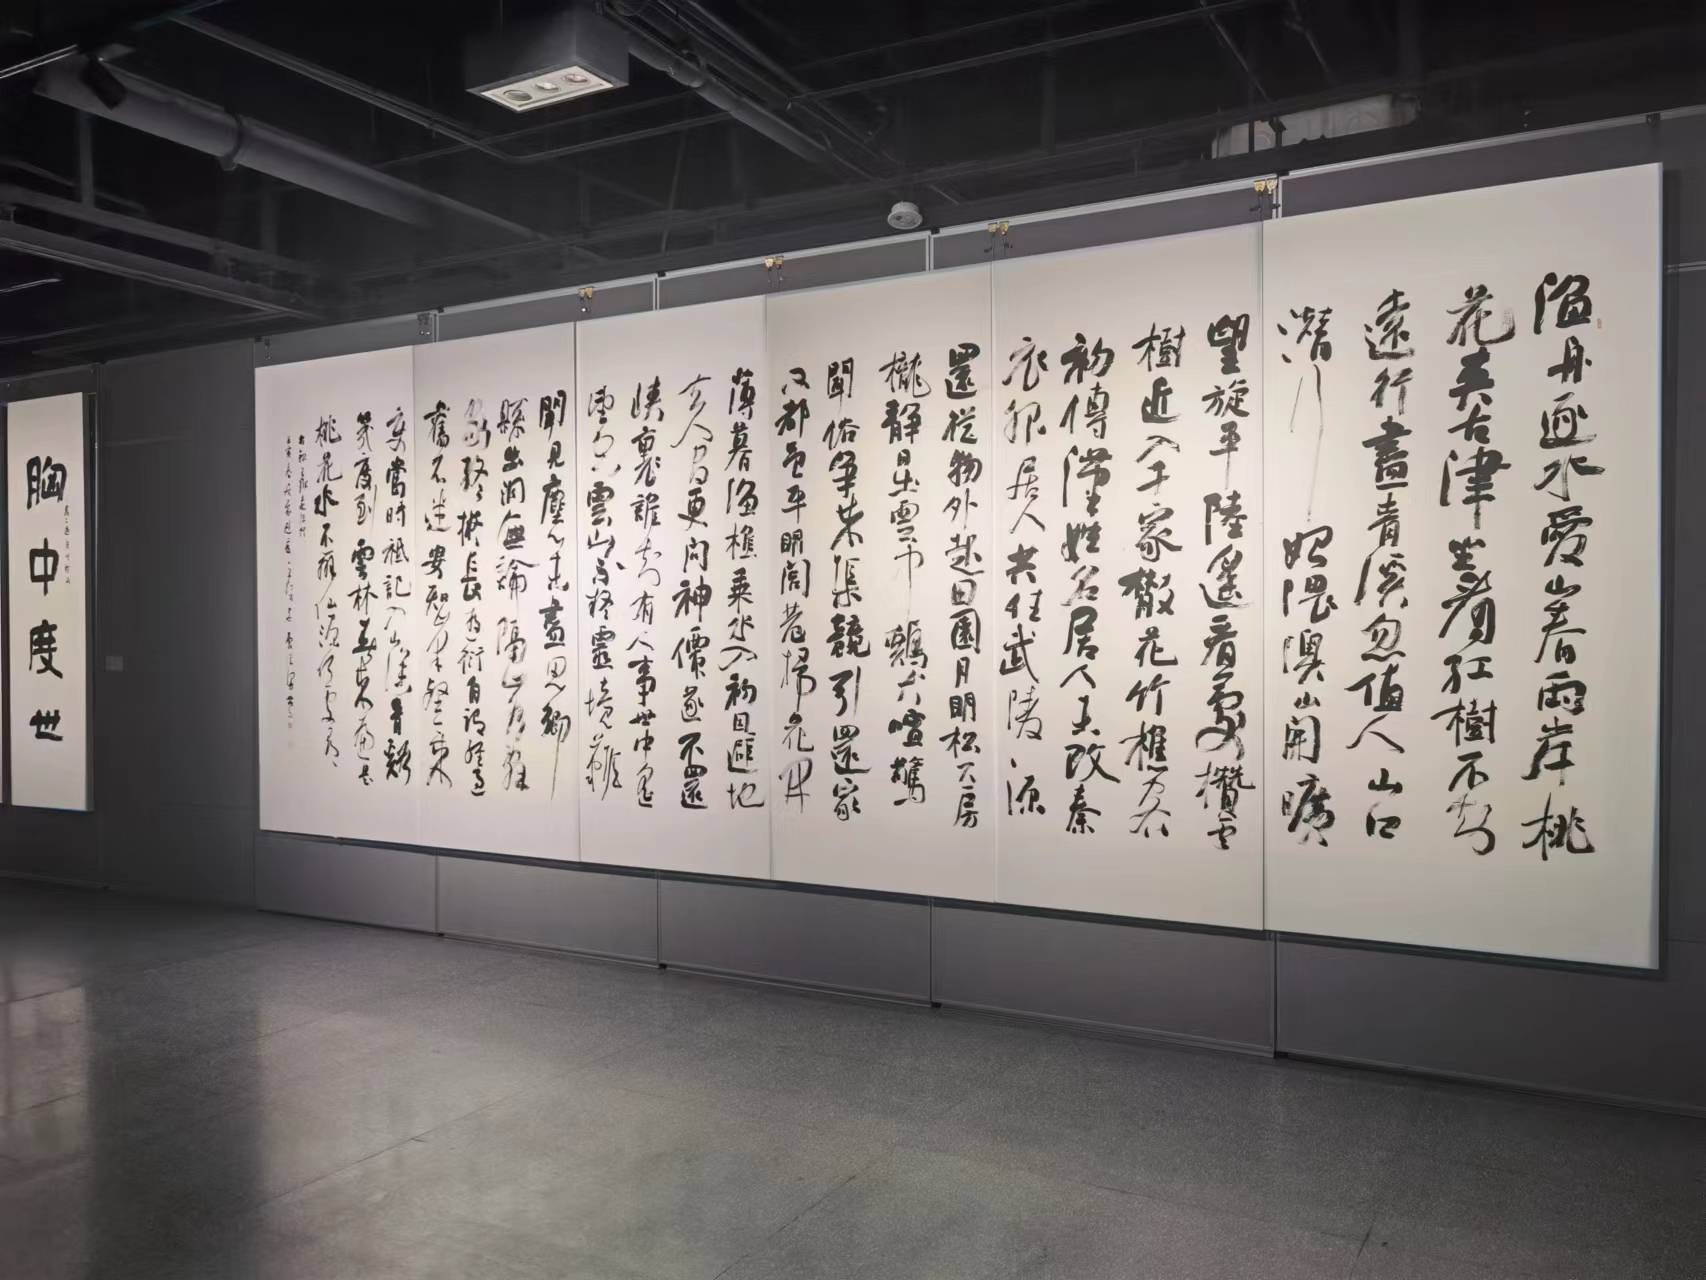 漁舟逐水愛山春兩岸桃
花夾古津坐看紅樹不知
遠行盡青溪忽值人山口
潛行始隈隩山開曠
望旋平陸遙看一處攢雲
樹近入千家散花竹樵客
初傳漢姓名居人未改秦
衣服居人共住武陵源
還從物外起田園月明松下房
櫳靜日出雲中鷄犬喧驚
聞俗爭來集競引還家
问都邑平明閭巷掃花開
薄暮漁樵乘水入初因避地
去人間更问神僊遂不還
峽裏誰知有人事世中遙
望空雲山不疑靈境難
聞見塵心未盡思鄉
縣出洞無論隔山水辭
家終擬長游衍自謂經過
舊不迷安知峰壑今來
變當時祗記入山深青谿
幾度到雲林春來遍是
桃花水不辨仙源何處尋
胸中度世